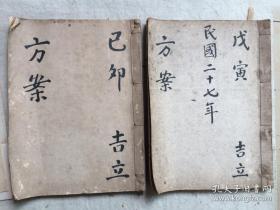 己卯 吉立
方案
戊寅 吉立
民國二十七年
方案
孔夫子旧书网